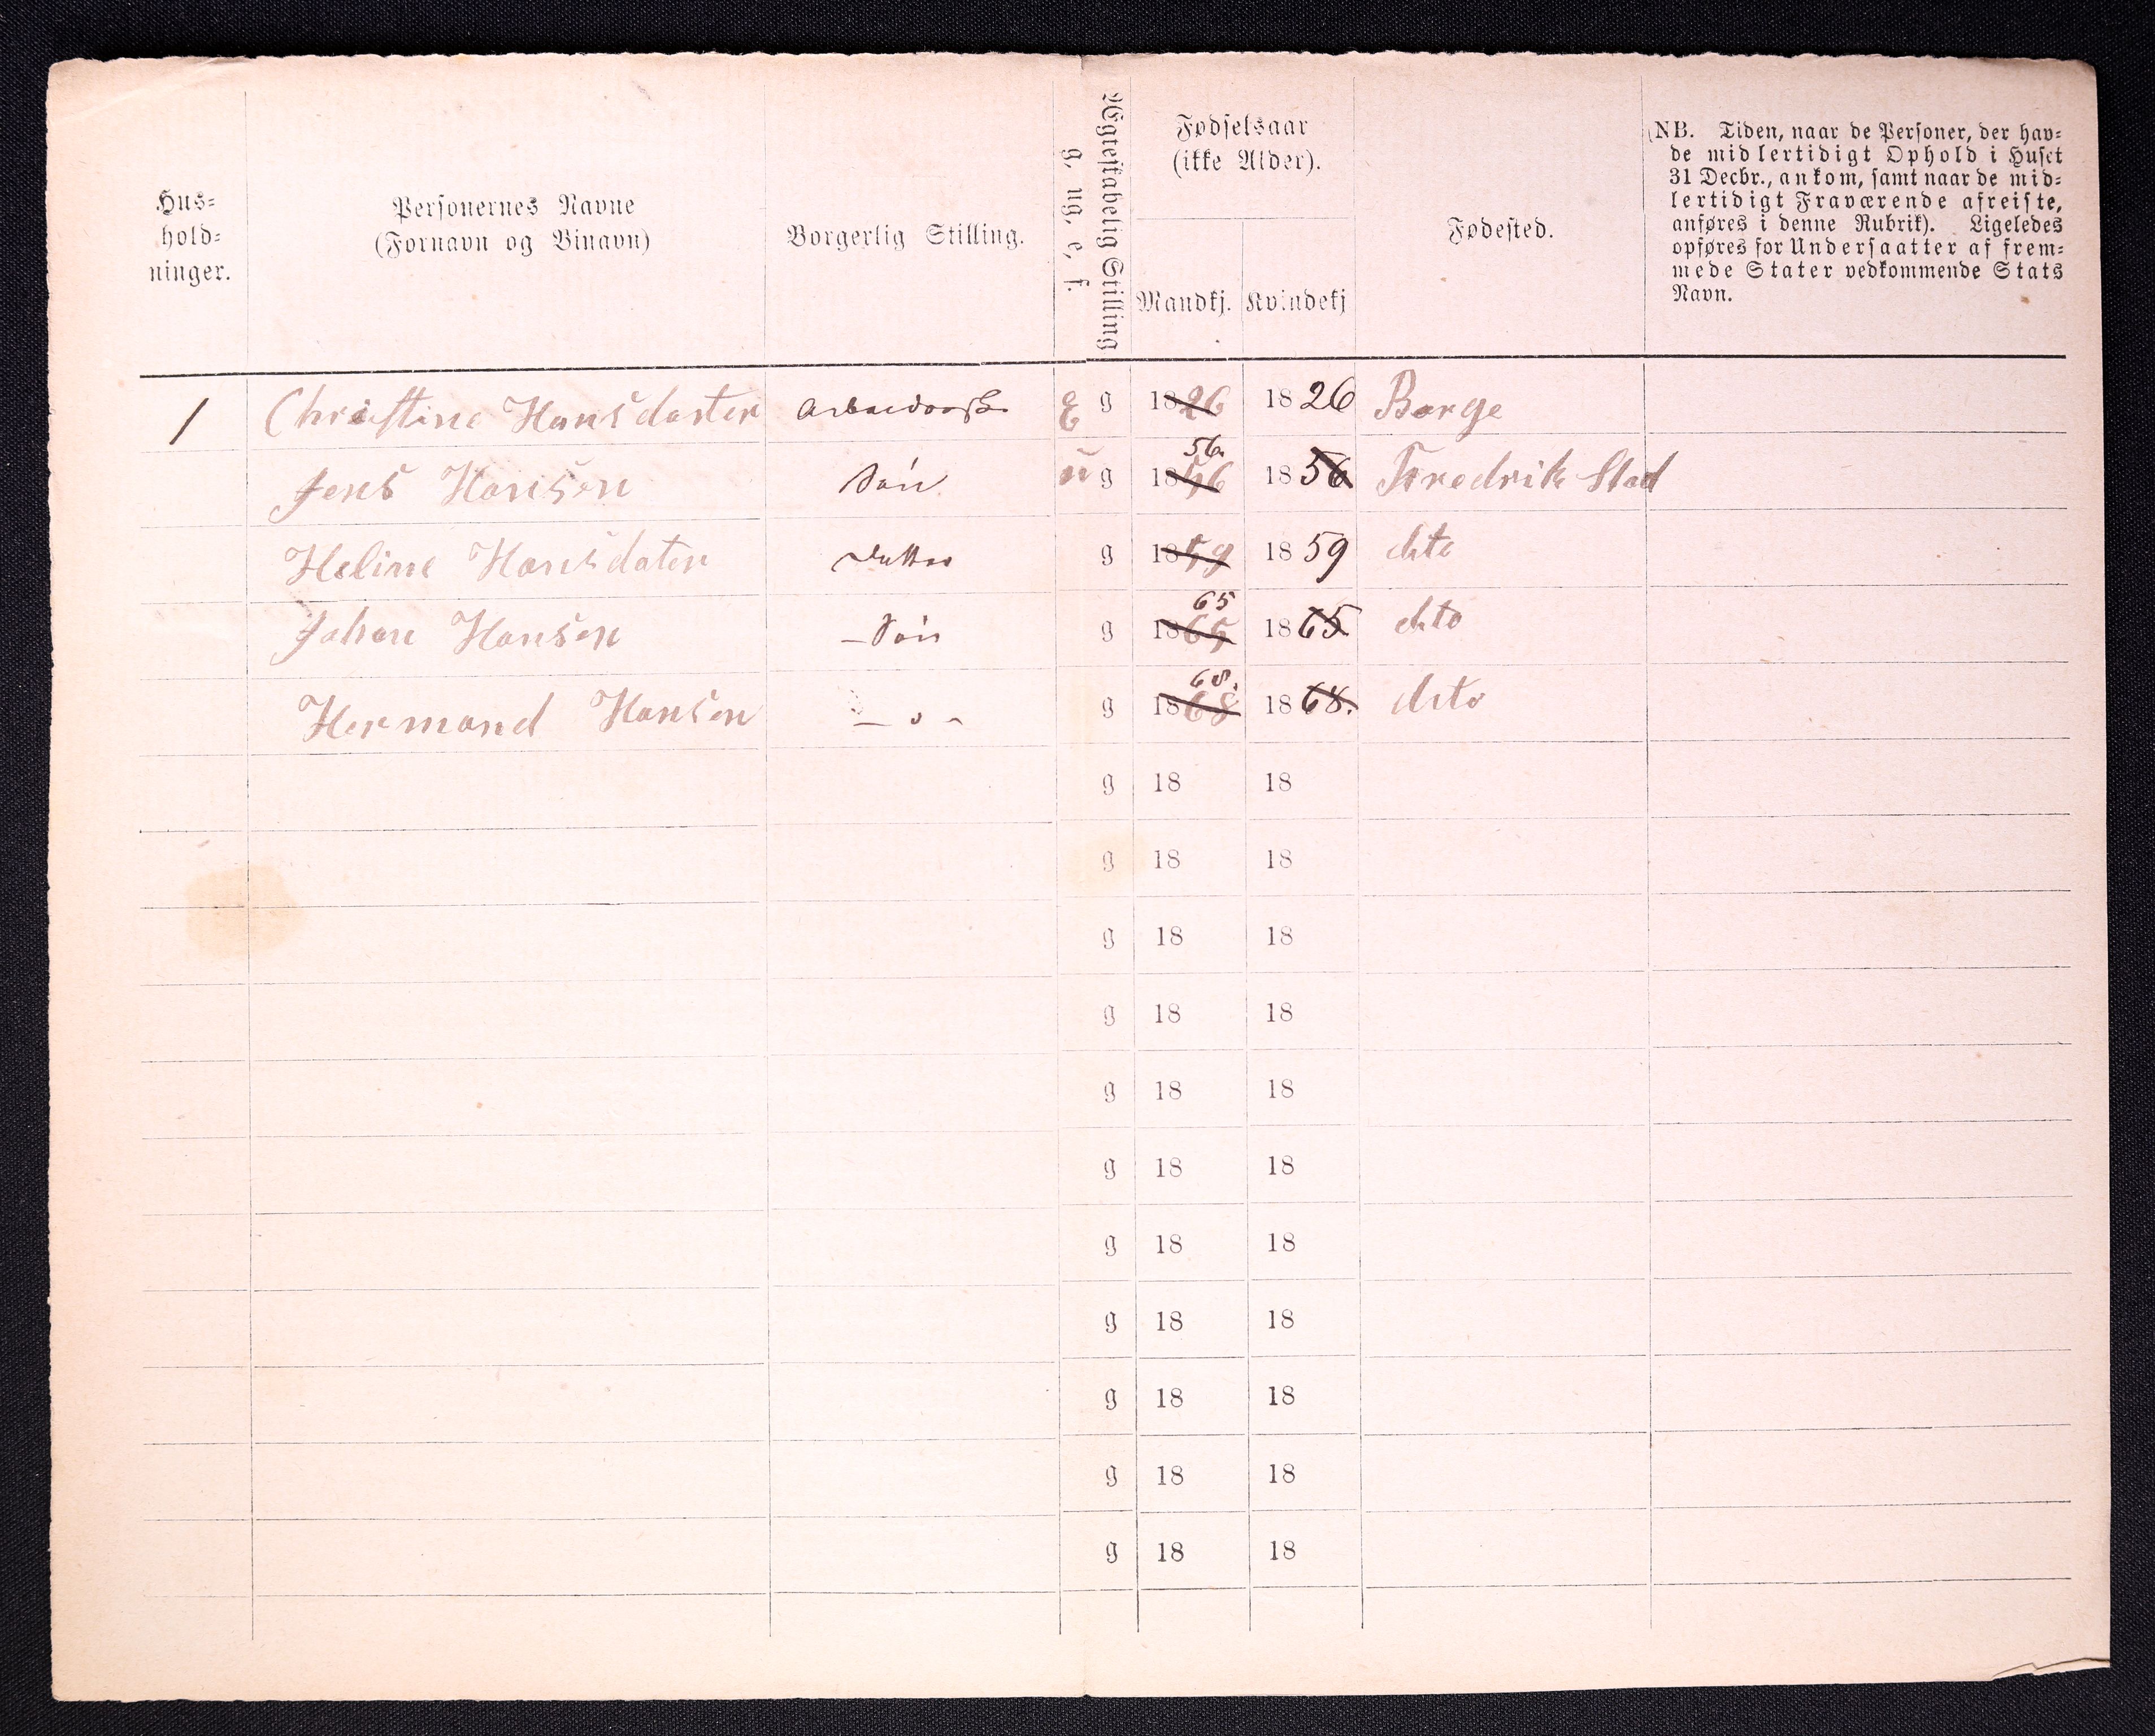 Hus-
hold-
ninger.
Personernes Navne
(Fornavn og Binavn)
Borgerlig Stilling.
Ægteskabelig Stilling
g, ug, e, f.
Fødselsaar
(ikke Alder).
Mandkj. Kvindekj
Fødested.
(NB. Tiden, naar de Personer, der hav-
de midlertidigt Ophold i Huset
31 Decbr., ankom, samt naar de mid-
lertidigt Fraværende afreiste,
anføres i denne Rubrik). Ligeledes
opføres for Undersaatter af frem-
mede Stater vedkommende Stats
Navn.
1 Christine Hansdaster E g 1826 1826 Borge
56.
Jens Hansen Søn u g 1856 1856 Fredrik Stad
Heline Hansdater Datter g 1859 1859 dito
65
Johan Hansen — Søn g 1865 1865 dito
68.
Hermand Hansen — o - g 1868 1868. dito
g 18 18
g 18 18
g 18 18
g 18 18
g 18 18
g 18 18
g 18 18
g 18 18
g 18 18
g 18 18
g 18 18